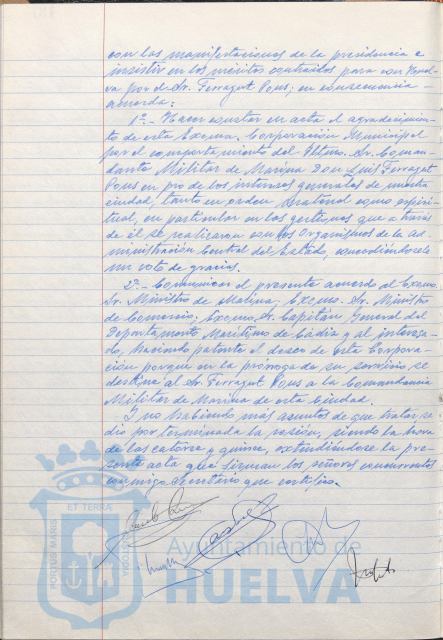 con las manifestaciones de la presidencia e
insistir en los méritos contraidos para con Huel-
va por el Sr. Ferragut Pous; en consecuencia
acuerda:
1º.- Hacer constar en acta el agradecimien-
to de esta Excma. Corporación Municipal
por el comportamiento del Iltmo. Sr. Coman-
dante Militar de Marina Don Luis Ferragut
Pous en pro de los intereses generales de nuestra
ciudad, tanto en orden material como espiri-
tual, en particular en las gestiones que a través
de él se realizaron con los Organismos de la Ad-
ministración Central del Estado, concediéndosele
un voto de gracias.
2º.- Comunicar el presente acuerdo al Excmo.
Sr. Ministro de Marina, Excmo. Sr. Ministro
de Comercio, Excmo. Sr. Capitán General del
Departamento Marítimo de Cádiz y al interesa-
do, haciendo patente el deseo de esta Corpora-
ción porque en la prórroga de su servicio se
destine al Sr. Ferragut Pous a la Comandancia
Militar de Marina de esta Ciudad.
Y no habiendo más asuntos de que tratar se
dió por terminada la sesión, siendo la hora
de las catorce y quince, extendiéndose la pre-
sente acta que firman los señores concurrentes
conmigo Secretario que certifico.
ET TERRA
PORTUS MARIS
CUSTODIA
Ayuntamiento de
HUELVA